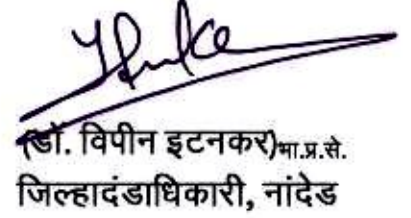 (डॉ. विपीन इटनकर)भा.प्र.से.
जिल्हादंडाधिकारी, नांदेड